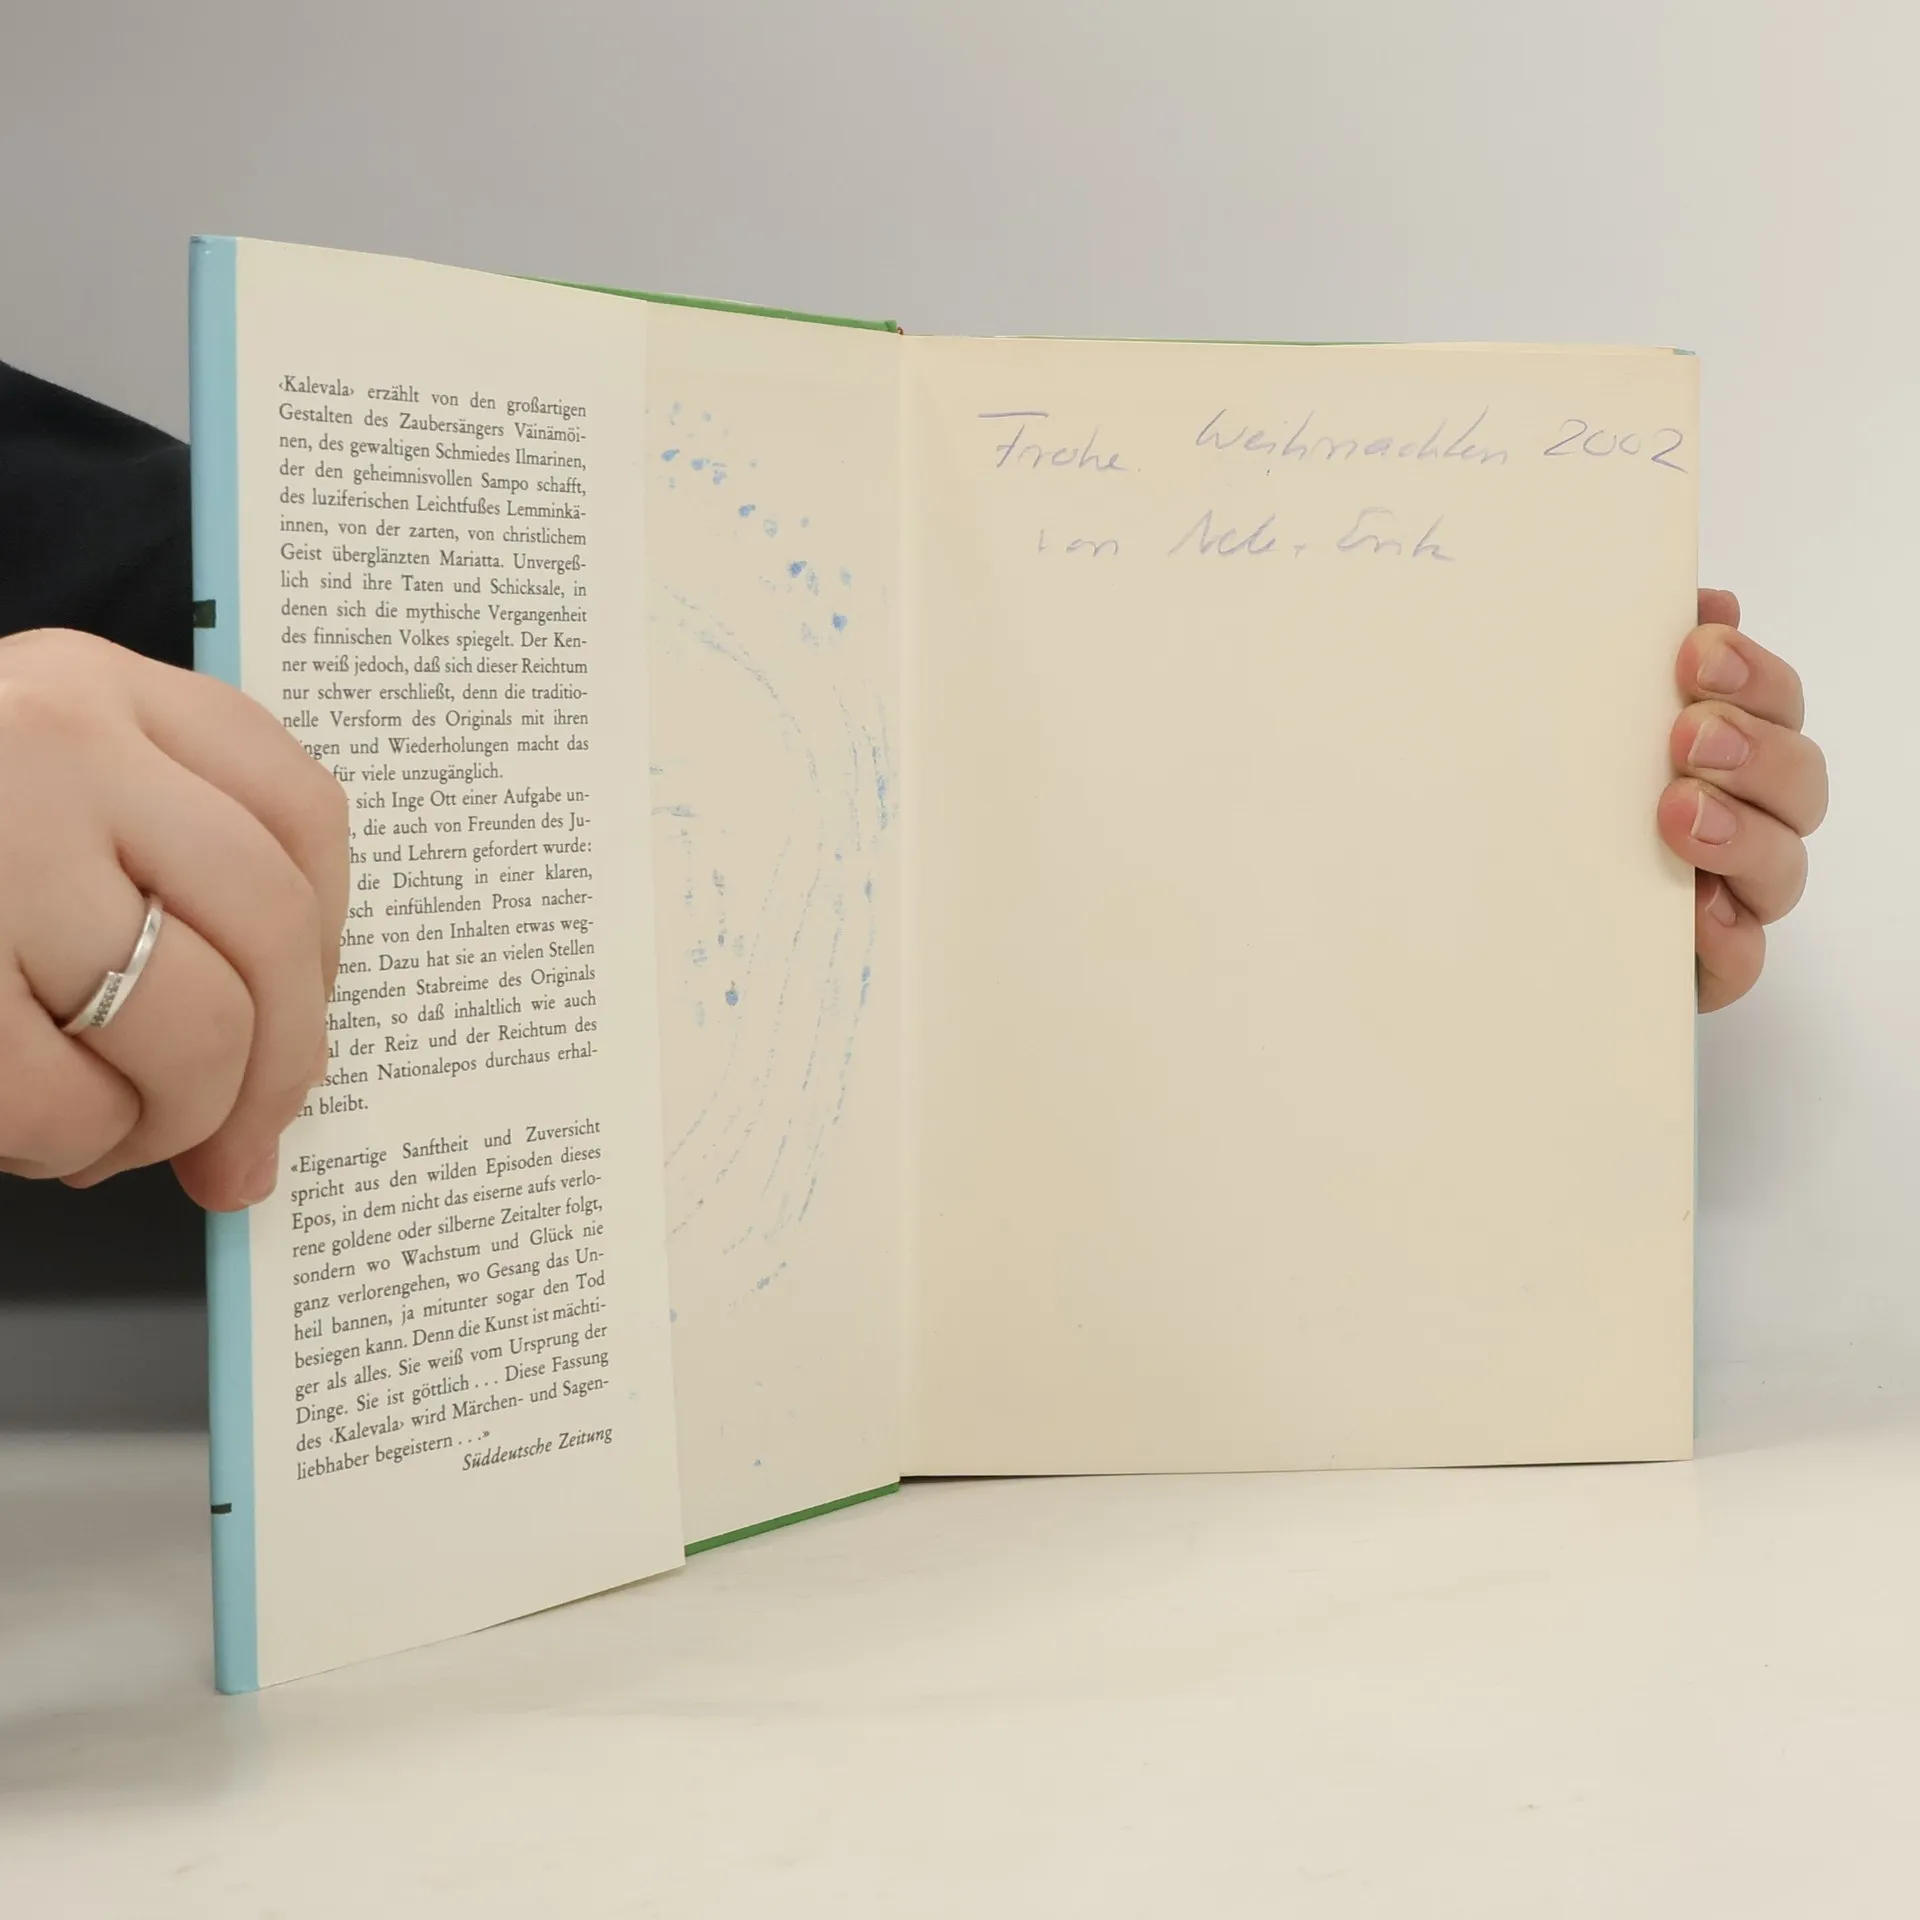 ‹Kalevala› erzählt von den großartigen
Gestalten des Zaubersängers Väinämöi-
nen, des gewaltigen Schmiedes Ilmarinen,
der den geheimnisvollen Sampo schafft,
des luziferischen Leichtfußes Lemminkä-
innen, von der zarten, von christlichem
Geist überglänzten Mariatta. Unvergeß-
lich sind ihre Taten und Schicksale, in
denen sich die mythische Vergangenheit
des finnischen Volkes spiegelt. Der Ken-
ner weiß jedoch, daß sich dieser Reichtum
nur schwer erschließt, denn die traditio-
nelle Versform des Originals mit ihren
und Wiederholungen macht das
für viele unzugänglich.
sich Inge Ott einer Aufgabe un-
die auch von Freunden des Ju-
und Lehrern gefordert wurde:
die Dichtung in einer klaren,
einfühlenden Prosa nacher-
ohne von den Inhalten etwas weg-
Dazu hat sie an vielen Stellen
Stabreime des Originals
so daß inhaltlich wie auch
der Reiz und der Reichtum des
Nationalepos durchaus erhal-
bleibt.
«Eigenartige Sanftheit und Zuversicht
spricht aus den wilden Episoden dieses
Epos, in dem nicht das eiserne aufs verlo-
rene goldene oder silberne Zeitalter folgt,
sondern wo Wachstum und Glück nie
ganz verlorengehen, wo Gesang das Un-
heil bannen, ja mitunter sogar den Tod
besiegen kann. Denn die Kunst ist mächti-
ger als alles. Sie weiß vom Ursprung der
Dinge. Sie ist göttlich . . . Diese Fassung
des ‹Kalevala› wird Märchen- und Sagen-
liebhaber begeistern . . .»
Süddeutsche Zeitung
Frohe Weihnachten 2002
von